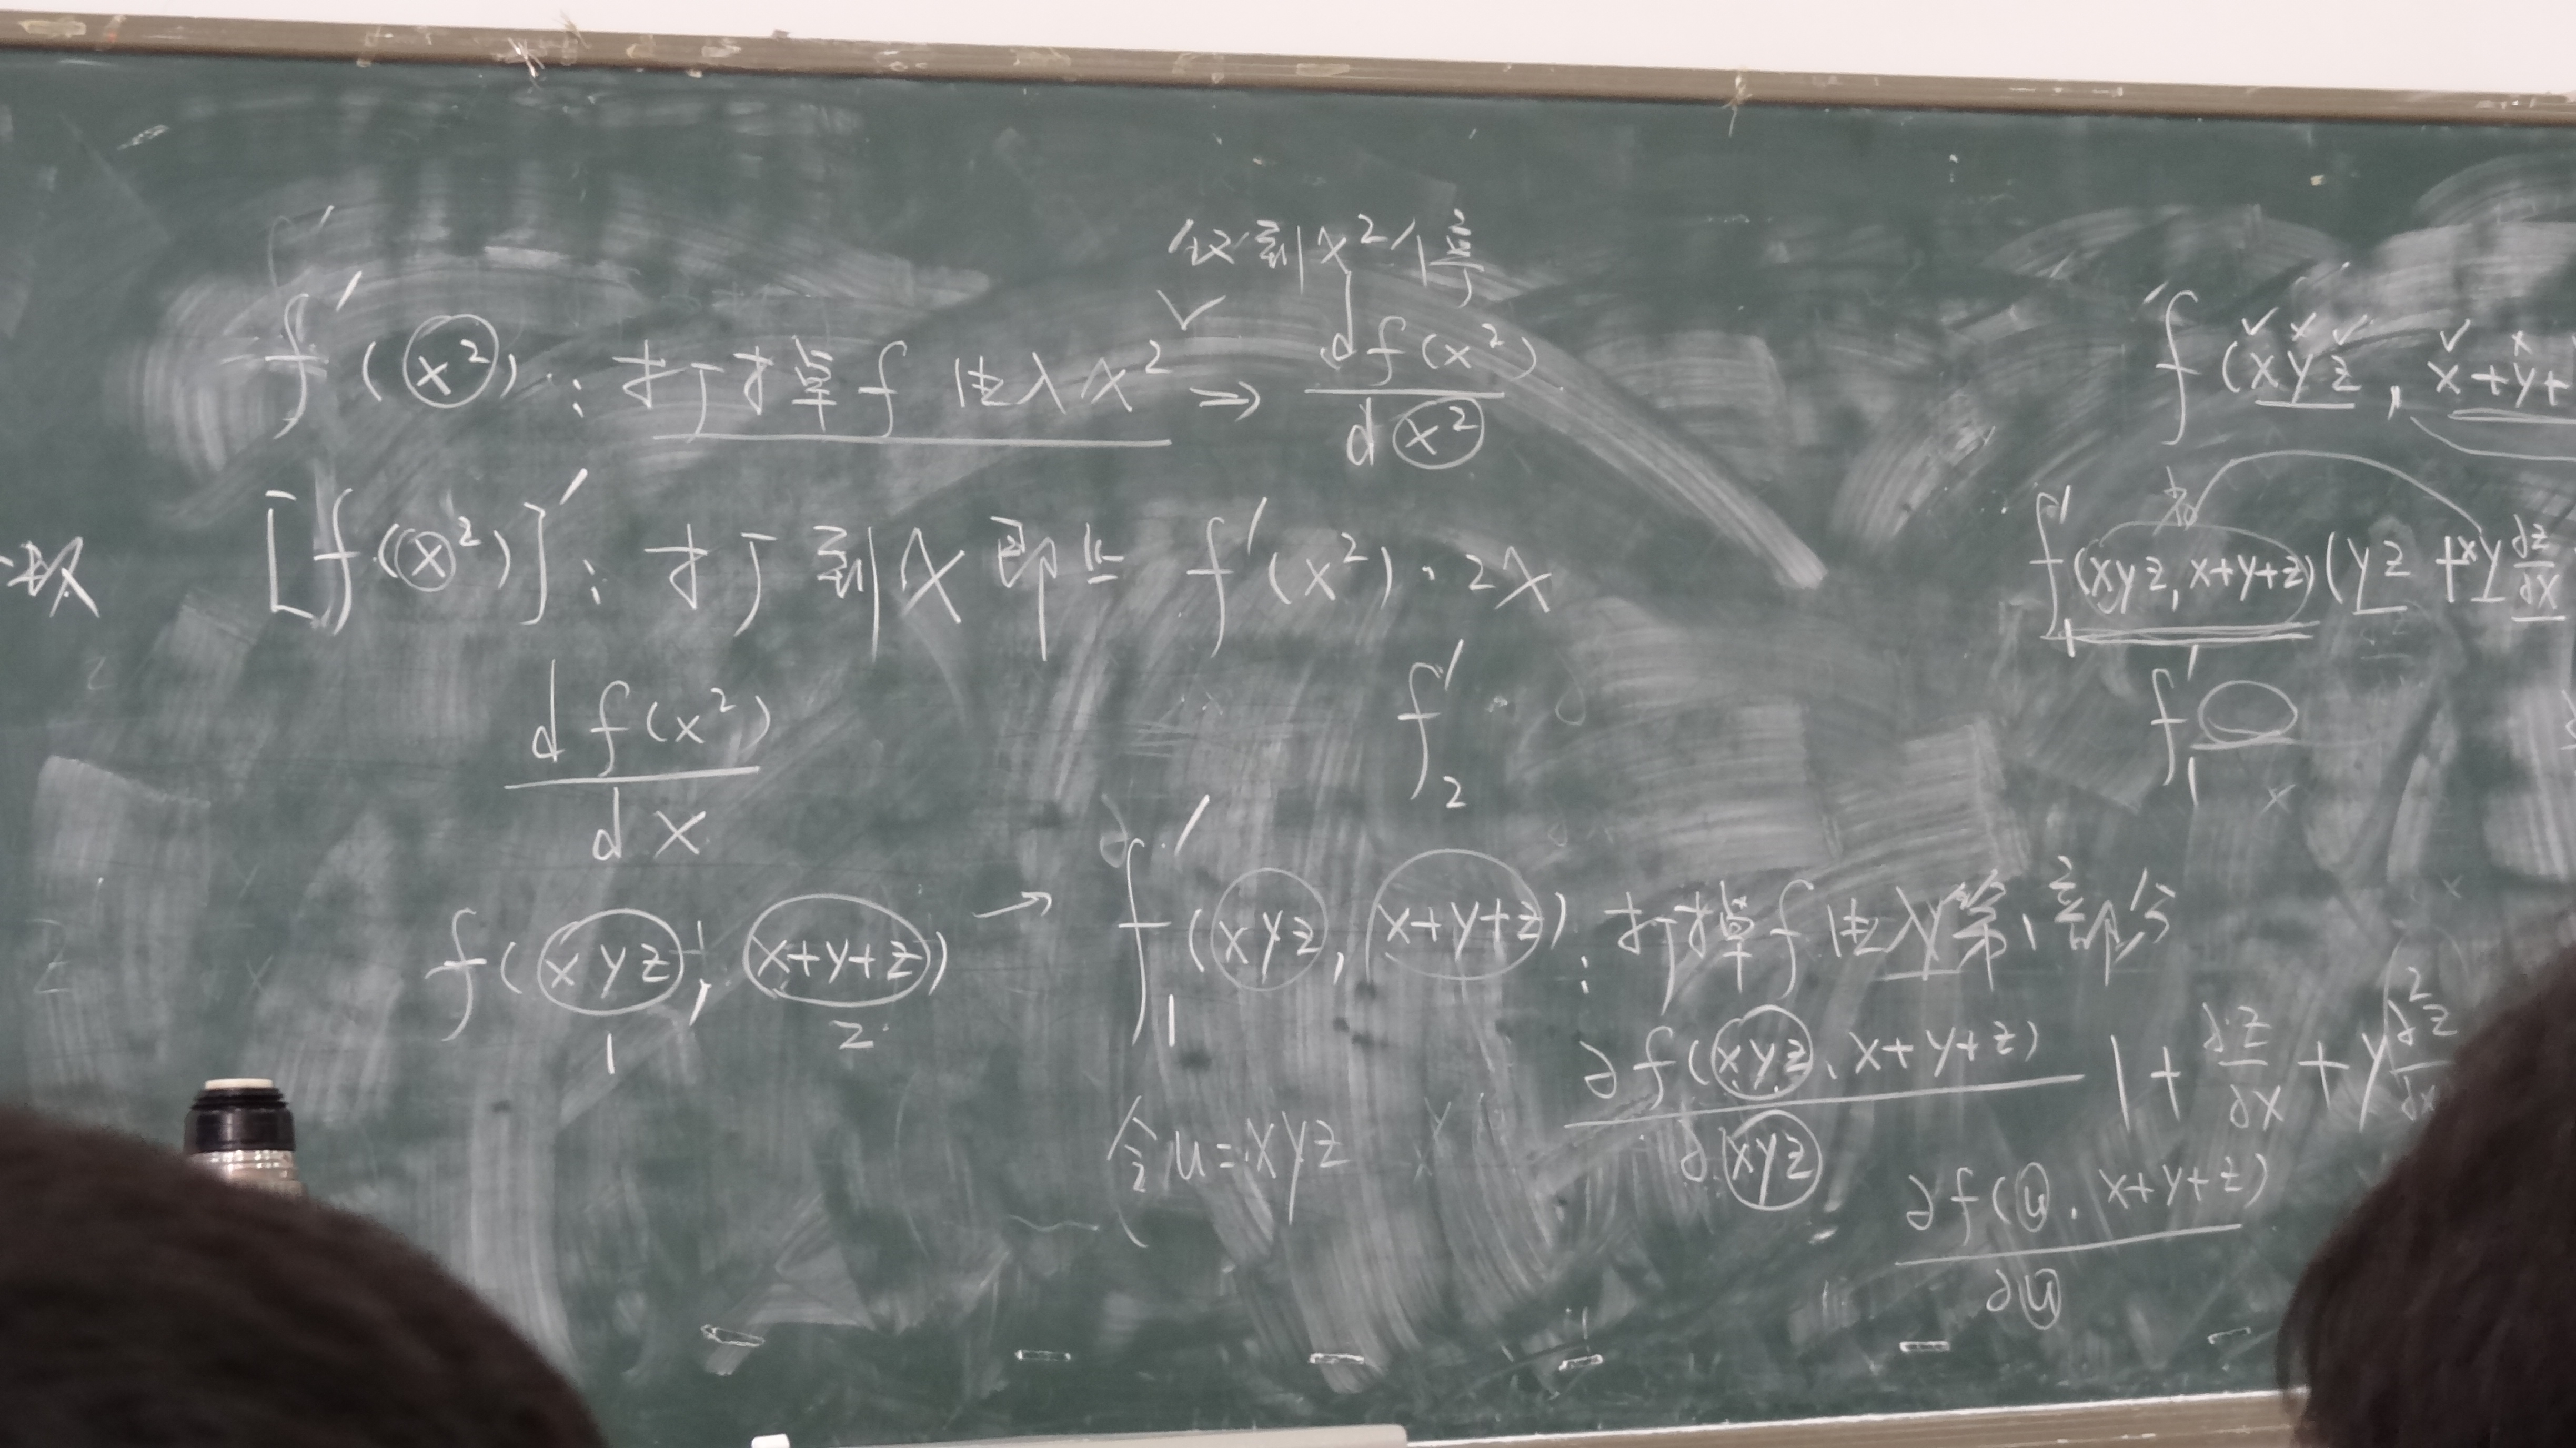 仅到x²停
f'(x²): 打掉f进入x² ⇒ df(x²)/dx²
[f(x²)]': 打到x即止 f'(x²)·2x
df(x²)/dx
f'₂
f(xyz, x+y+z) → f'₁(xyz, x+y+z): 打掉f进入第1部分
1 2
∂f(xyz, x+y+z)/∂(xyz)
令u=xyz
∂f(u, x+y+z)/∂u
f(xyz, x+y+
f'₁(xyz, x+y+z)(yz+xy ∂z/∂x
f'₁
1+∂z/∂x+y ∂²z